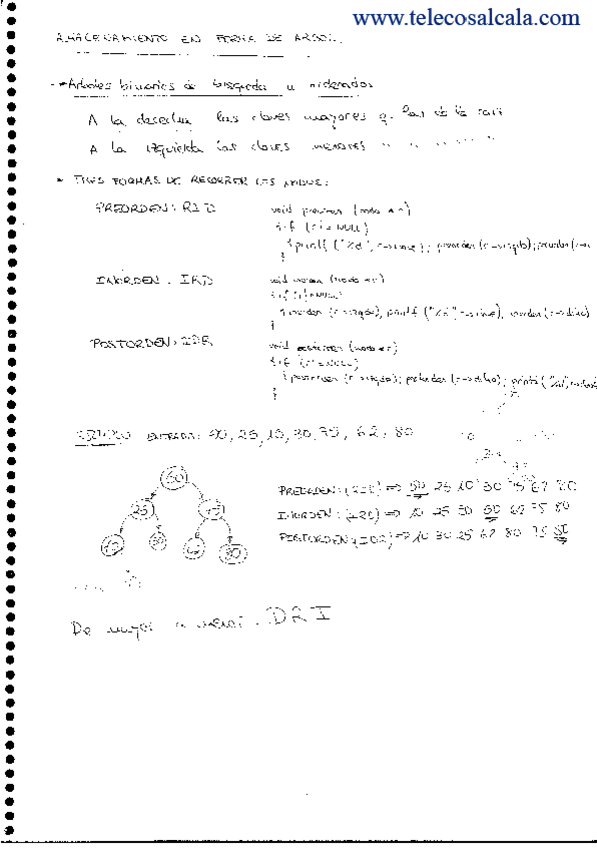 www.telecosalcala.com
ALMACENAMIENTO EN FORMA DE ARBOL.
* Arboles binarios de búsqueda u ordenados
A la derecha las claves mayores q. las de la raiz
A la izquierda las claves menores " " " " "
* TRES FORMAS DE RECORRER LOS NODOS:
PREORDEN: RID
void preorden (nodo * r)
{ if (r != NULL)
{ printf ("%d", r->clave); preorden (r->izqdo); preorden (r->
}
INORDEN: IRD
void inorden (nodo * r)
{ if (r != NULL)
{ inorden (r->izqdo); printf ("%d", r->clave); inorden (r->dcho)
}
POSTORDEN: IDR
void postorden (nodo * r)
{ if (r != NULL)
{ postorden (r->izqdo); postorden (r->dcho); printf ("%d",
}
EJEMPLO ENTRADA: 50, 25, 10, 30, 75, 62, 80
50
25 75
10 30 62 80
PREORDEN: (RID) => 50 25 10 30 75 62 80
INORDEN: (IRD) => 10 25 30 50 62 75 80
POSTORDEN: (IDR) => 10 30 25 62 80 75 50
De mayor a menor: DRI